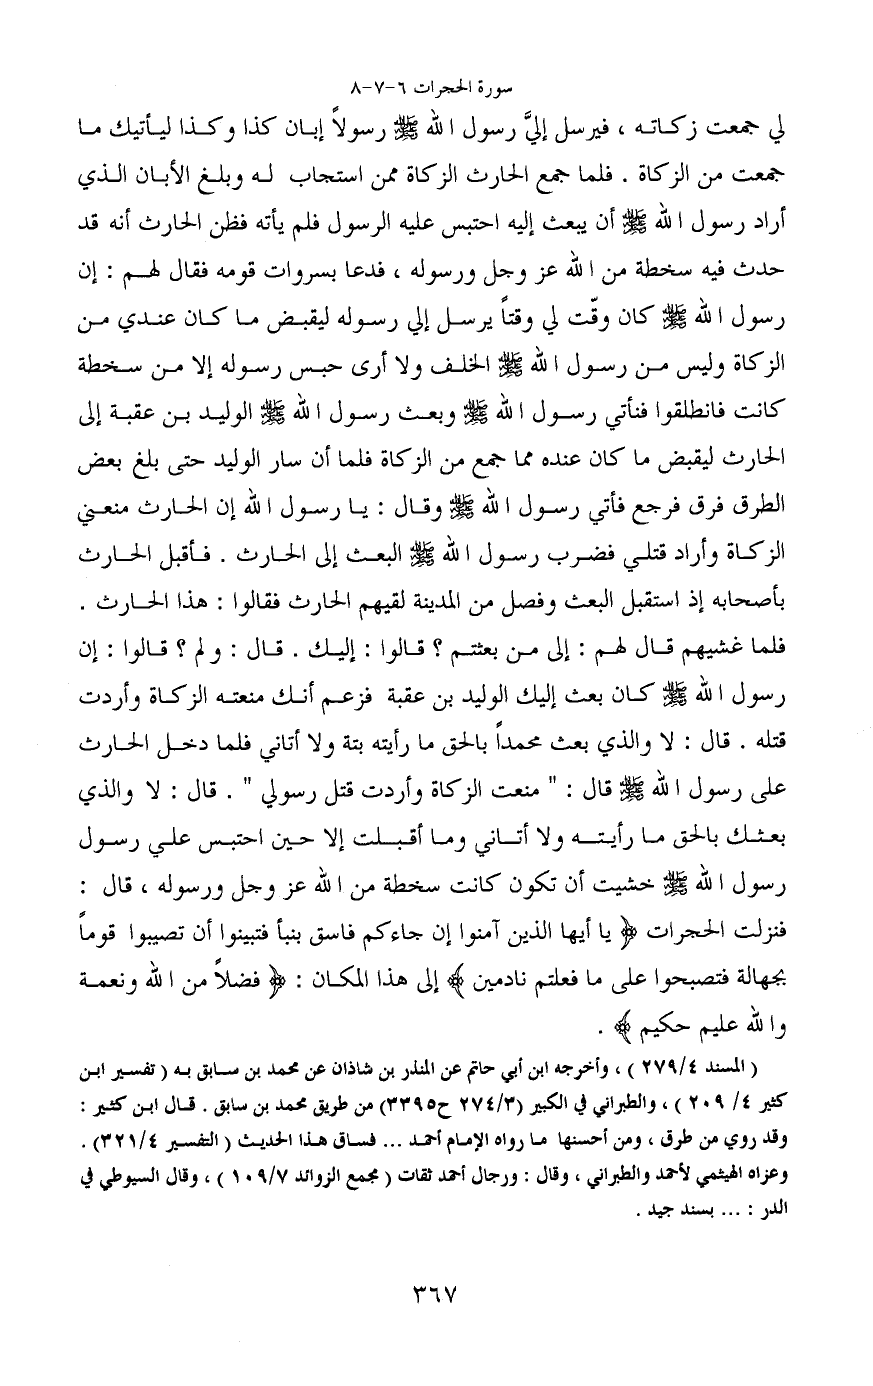 سورة الحجرات ٦-٧-٨
لي جمعت زكاته ، فيرسل إليَّ رسول الله ﷺ رسولاً إبان كذا وكذا ليأتيك ما
جمعت من الزكاة . فلما جمع الحارث الزكاة ممن استجاب له وبلغ الأبان الذي
أراد رسول الله ﷺ أن يبعث إليه احتبس عليه الرسول فلم يأته فظن الحارث أنه قد
حدث فيه سخطة من الله عز وجل ورسوله ، فدعا بسروات قومه فقال لهم : إن
رسول الله ﷺ كان وقّت لي وقتاً يرسل إلي رسوله ليقبض ما كان عندي من
الزكاة وليس من رسول الله ﷺ الخلف ولا أرى حبس رسوله إلا من سخطة
كانت فانطلقوا فنأتي رسول الله ﷺ وبعث رسول الله ﷺ الوليد بن عقبة إلى
الحارث ليقبض ما كان عنده مما جمع من الزكاة فلما أن سار الوليد حتى بلغ بعض
الطرق فرق فرجع فأتي رسول الله ﷺ وقال : يا رسول الله إن الحارث منعني
الزكاة وأراد قتلي فضرب رسول الله ﷺ البعث إلى الحارث . فأقبل الحارث
بأصحابه إذ استقبل البعث وفصل من المدينة لقيهم الحارث فقالوا : هذا الحارث .
فلما غشيهم قال لهم : إلى من بعثتم ؟ قالوا : إليك . قال : ولم ؟ قالوا : إن
رسول الله ﷺ كان بعث إليك الوليد بن عقبة فزعم أنك منعته الزكاة وأردت
قتله . قال : لا والذي بعث محمداً بالحق ما رأيته بتة ولا أتاني فلما دخل الحارث
على رسول الله ﷺ قال : " منعت الزكاة وأردت قتل رسولي " . قال : لا والذي
بعثك بالحق ما رأيته ولا أتاني وما أقبلت إلا حين احتبس علي رسول
رسول الله ﷺ خشيت أن تكون كانت سخطة من الله عز وجل ورسوله ، قال :
فنزلت الحجرات ﴿ يا أيها الذين آمنوا إن جاءكم فاسق بنبأ فتبينوا أن تصيبوا قوماً
بجهالة فتصبحوا على ما فعلتم نادمين ﴾ إلى هذا المكان : ﴿ فضلاً من الله ونعمة
والله عليم حكيم ﴾ .
( المسند ٢٧٩/٤ ) ، وأخرجه ابن أبي حاتم عن المنذر بن شاذان عن محمد بن سابق به ( تفسير ابن
كثير ٤/ ٢٠٩ ) ، والطبراني في الكبير (٢٧٤/٣ ح٣٣٩٥) من طريق محمد بن سابق . قال ابن كثير :
وقد روي من طرق ، ومن أحسنها ما رواه الإمام أحمد ... فساق هذا الحديث ( التفسير ٣٢١/٤) .
وعزاه الهيثمي لأحمد والطبراني ، وقال : ورجال أحمد ثقات ( مجمع الزوائد ١٠٩/٧ ) ، وقال السيوطي في
الدر : ... بسند جيد .
٣٦٧